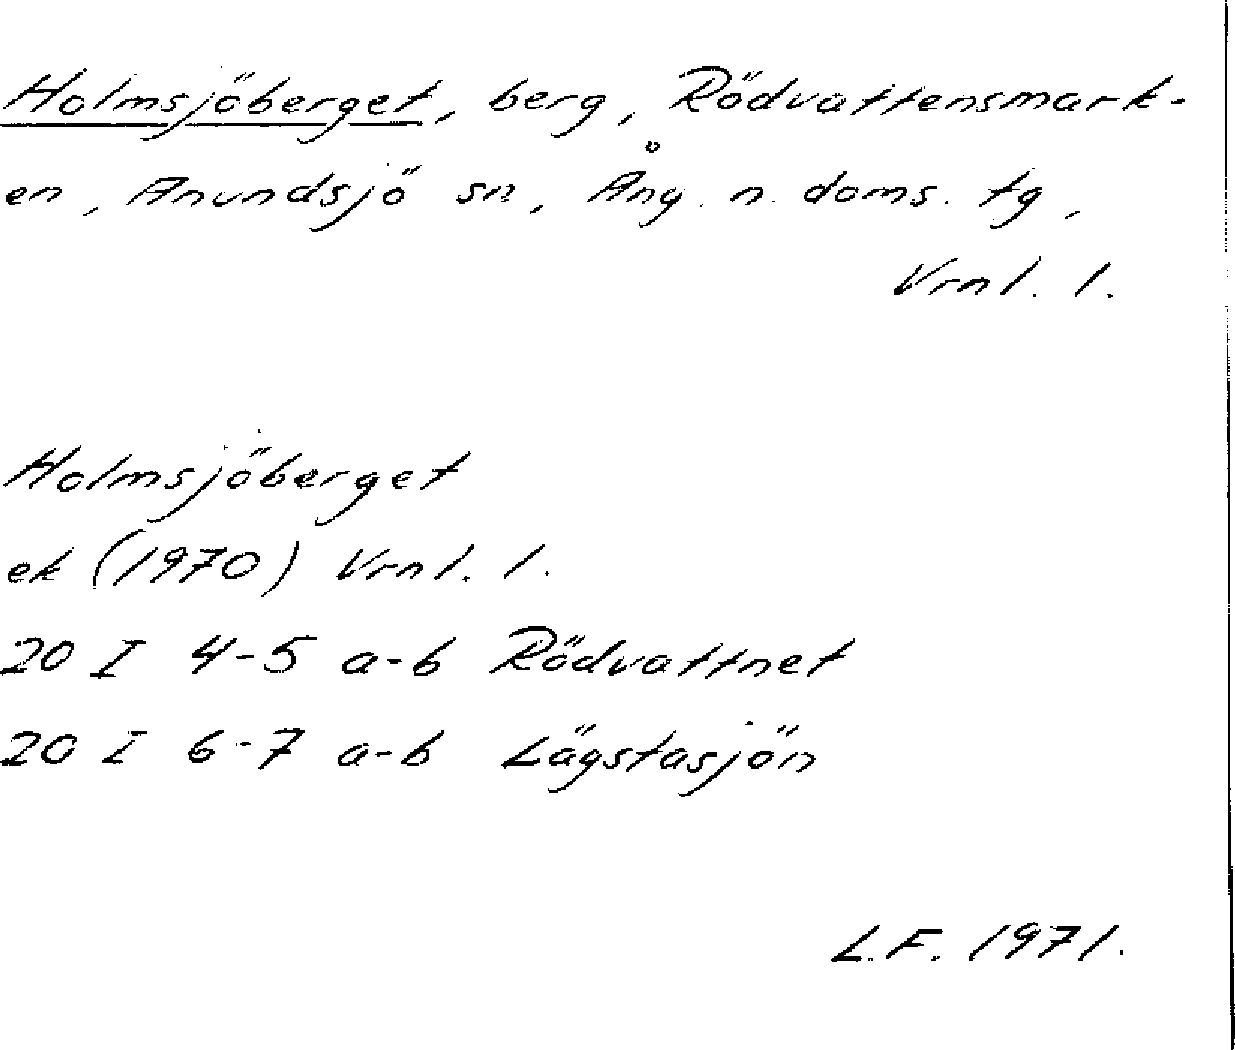 Holmsjöberget, berg, Rödvattensmark-
en, Anundsjö sn, Ång. n. doms. tg,
Vrnl. l.
Holmsjöberget
ek (1970) Vrnl. l.
20 I 4-5 a-b Rödvattnet
20 I 6-7 a-b Lägstasjön
L.F. 1971.